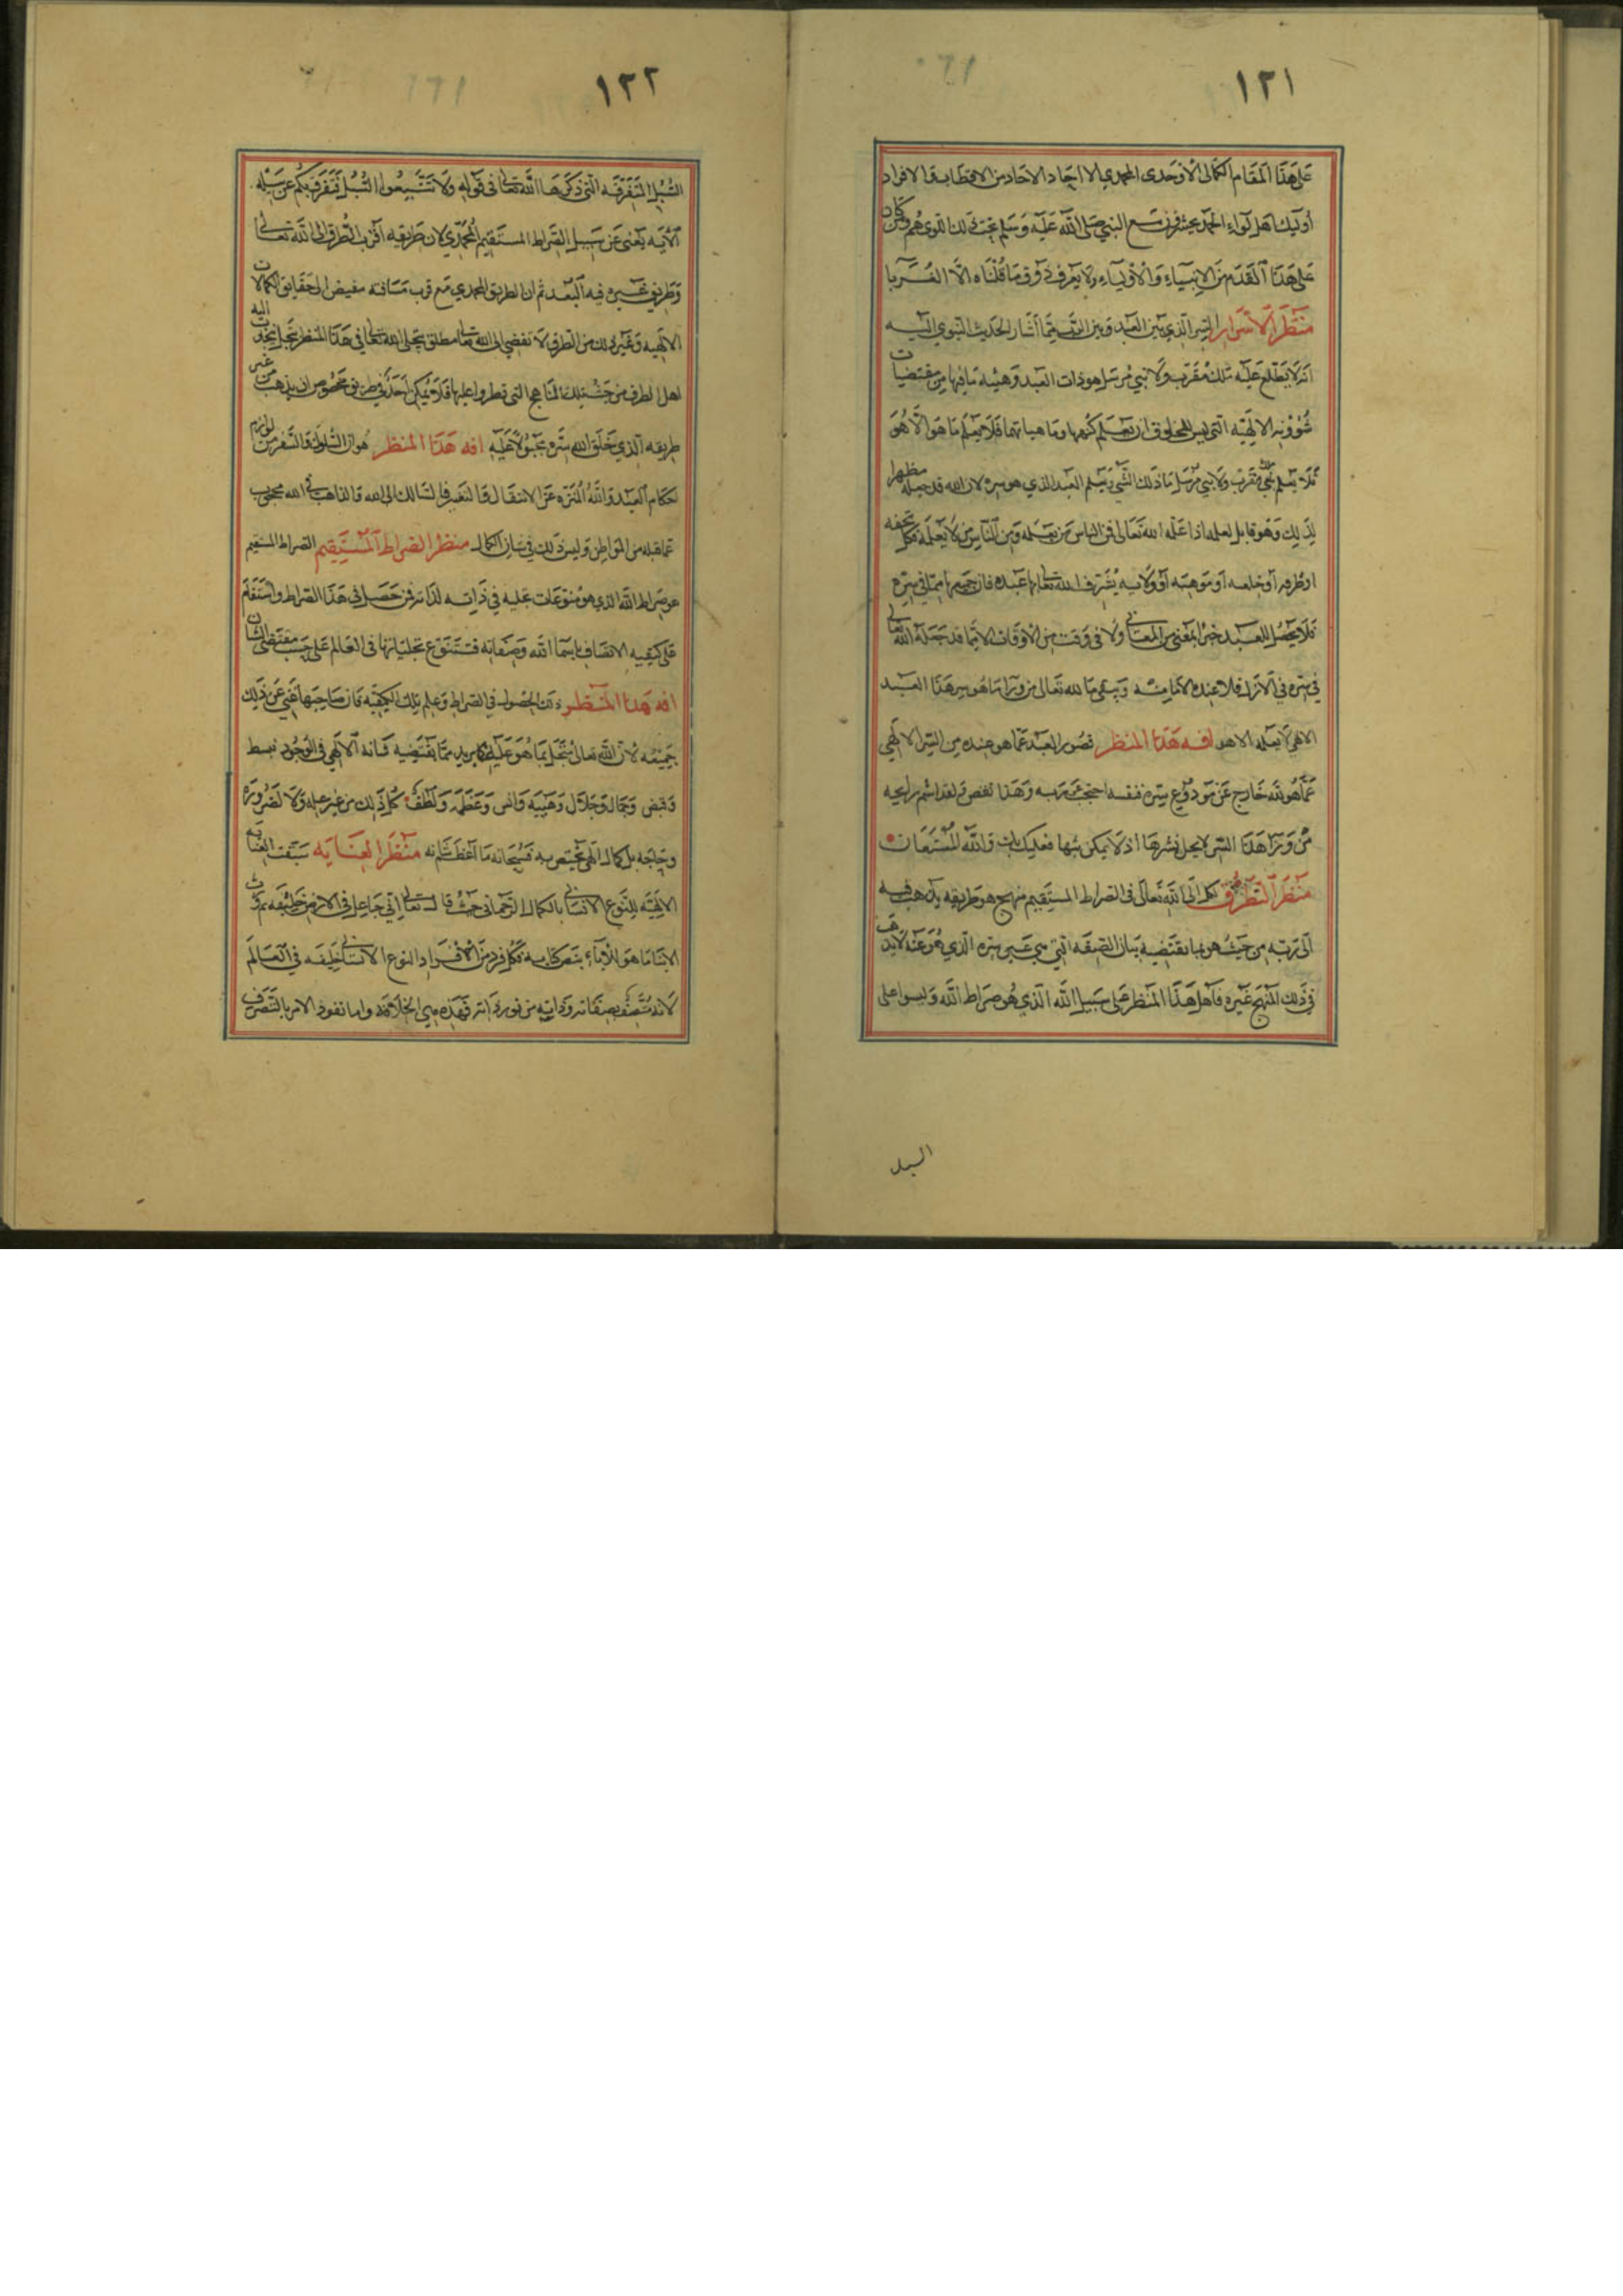 ١٢١
على هذا المقام الكمالى الأوحدى المحمدي الا احاد الاحاد من الاقطاب والافراد
أوليك اهل لواء الحمد يحشرون مع النبي صلى الله عليه وسلم تحت ذلك اللوى هم وكل من كان
على هذا القدم من الانبياء والأولياء ولا يعرف ذوق ما قلناه الا الغربا
منظر الأسرار السر الذي بين العبد وبين الرب مما أشار الحديث النبوي اليه
انه لا يطلع عليه ملك مقرب ولا نبي مرسل هو ذات العبد وهيئة ما فيها من مقتضيات
شؤونه الالهيه التى ليس للمخلوق ان يعلم كنهها وماهياتها فلا يعلم ما هو الا هو
فلا يعلم ملك مقرب ولا نبي مرسل ما ذلك الشي ويعلم العبد الذي هو سره لان الله قد جعله مظهرا
لذلك وهو قابل لعلمه اذا علمه الله تعالى فمن الناس من يعلمه ومن الناس من لا يعلمه فكل تحفه
او طرفه أو خلعه أو موهبه أو ولايه يشرف الله تعالى بها عبده فان جميعها مما في سره
فلا يحصل للعبد خير المعنى من المعانى ولا فى وقت من الاوقات الا بما قد جعله الله تعالى
في سره في الازل فلا عنده الا ما منه ويبقى ما لله تعالى من ورا ما هو سر هذا العبد
الاهي لا يعلمه الا هو افه هذا المنظر قصور العبد عما هو عنده من السر الالهي
عما هو لله خارج عن مودوع سره فنفسه احتجبت عن ربه وهذا نغص لغد اشم رايحه
من ورا هذا السر لا يحل نشرها اذ لا يمكن بثها فعليك بك والله المستعان
منظر التطرق كل الى الله تعالى فى الصراط المستقيم منهج هو طريقه يذهب فيه
الى ربه من حيث هو بما يقتضيه بيان الصفه التي هي عين سره الذي هو عنه لا يذهب
في ذلك المنهج غيره فاهل هذا المنظر على سبيل الله الذي هو صراط الله وليسوا على
السبل
١٢٢
السبل المتفرقه التي ذكرها الله تعالى فى قوله ولا تتبعوا السبل فتفرق بكم عن سبيله
الآيه يعنى عن سبيل الصراط المستقيم المحمدي لان طريقه اقرب الطرق الى الله تعالى
وطريق غيره فيه البعد ثم ان الطريق المحمدي مع قرب مسافته مفيض الى حقايق الكمالات
الالهيه وغير ذلك من الطرق لا تفضي الى الله تعالى مطلق يتجلى الله تعالى في هذا المنظر تجل يتجذب اليه
اهل الطرف من حيث تلك المناهج التي فطروا عليها فلا يمكن احد في طريق مخصوص ان يذهب من غير
طريقه الذي خلق الله سره مجبولا عليه افه هذا المنظر هو ان السلوك والسفر من لوازم
احكام العبد والله المنزه عن الانتقال والتغير فالسالك الى الله والذاهب فى الله محجوب
عما قبله من المواطن وليس ذلك في شان الكمال منظر الصراط المستقيم الصراط المستقيم
هو صراط الله الذي هو متنوعات عليه في ذاته لذاته فمن حصل فى هذا الصراط واستقام
على كيفيه الاتصاف باسما الله وصفاته فتتنوع تجلياتها فى العالم على حسب مقتضى الشان
افه هذا المنظر ذلك الحصول في الصراط وعلم تلك الكيفيه فان صاحبها غني عن ذلك
جميعه لأن الله تعالى يتجلى بما هو عليه كما يريد مما تقتضيه شانه الالهي في الوجود ببسط
وقبض وجمال وجلال وهيبه وانس وعظمه ولطف كل ذلك من غير عله ولا لضروره
وحاجه بل كمال الهى تختص به فسبحانه ما اعظم شانه منظر العنايه سبقت العنايه
الالهيه للنوع الانسانى بالكمال الرحمانى حيث قال تعالى انى جاعل فى الارض خليفه ثم ورث
الابنا ما هو للأباء بنص كتابه فكل فرد من الافراد النوع الانسانى خليفه في العالم
لانه متصف بصفاته وذاته من نور ذاته فهذه هي الخلافه واما نفوذ الامر بالتصرف